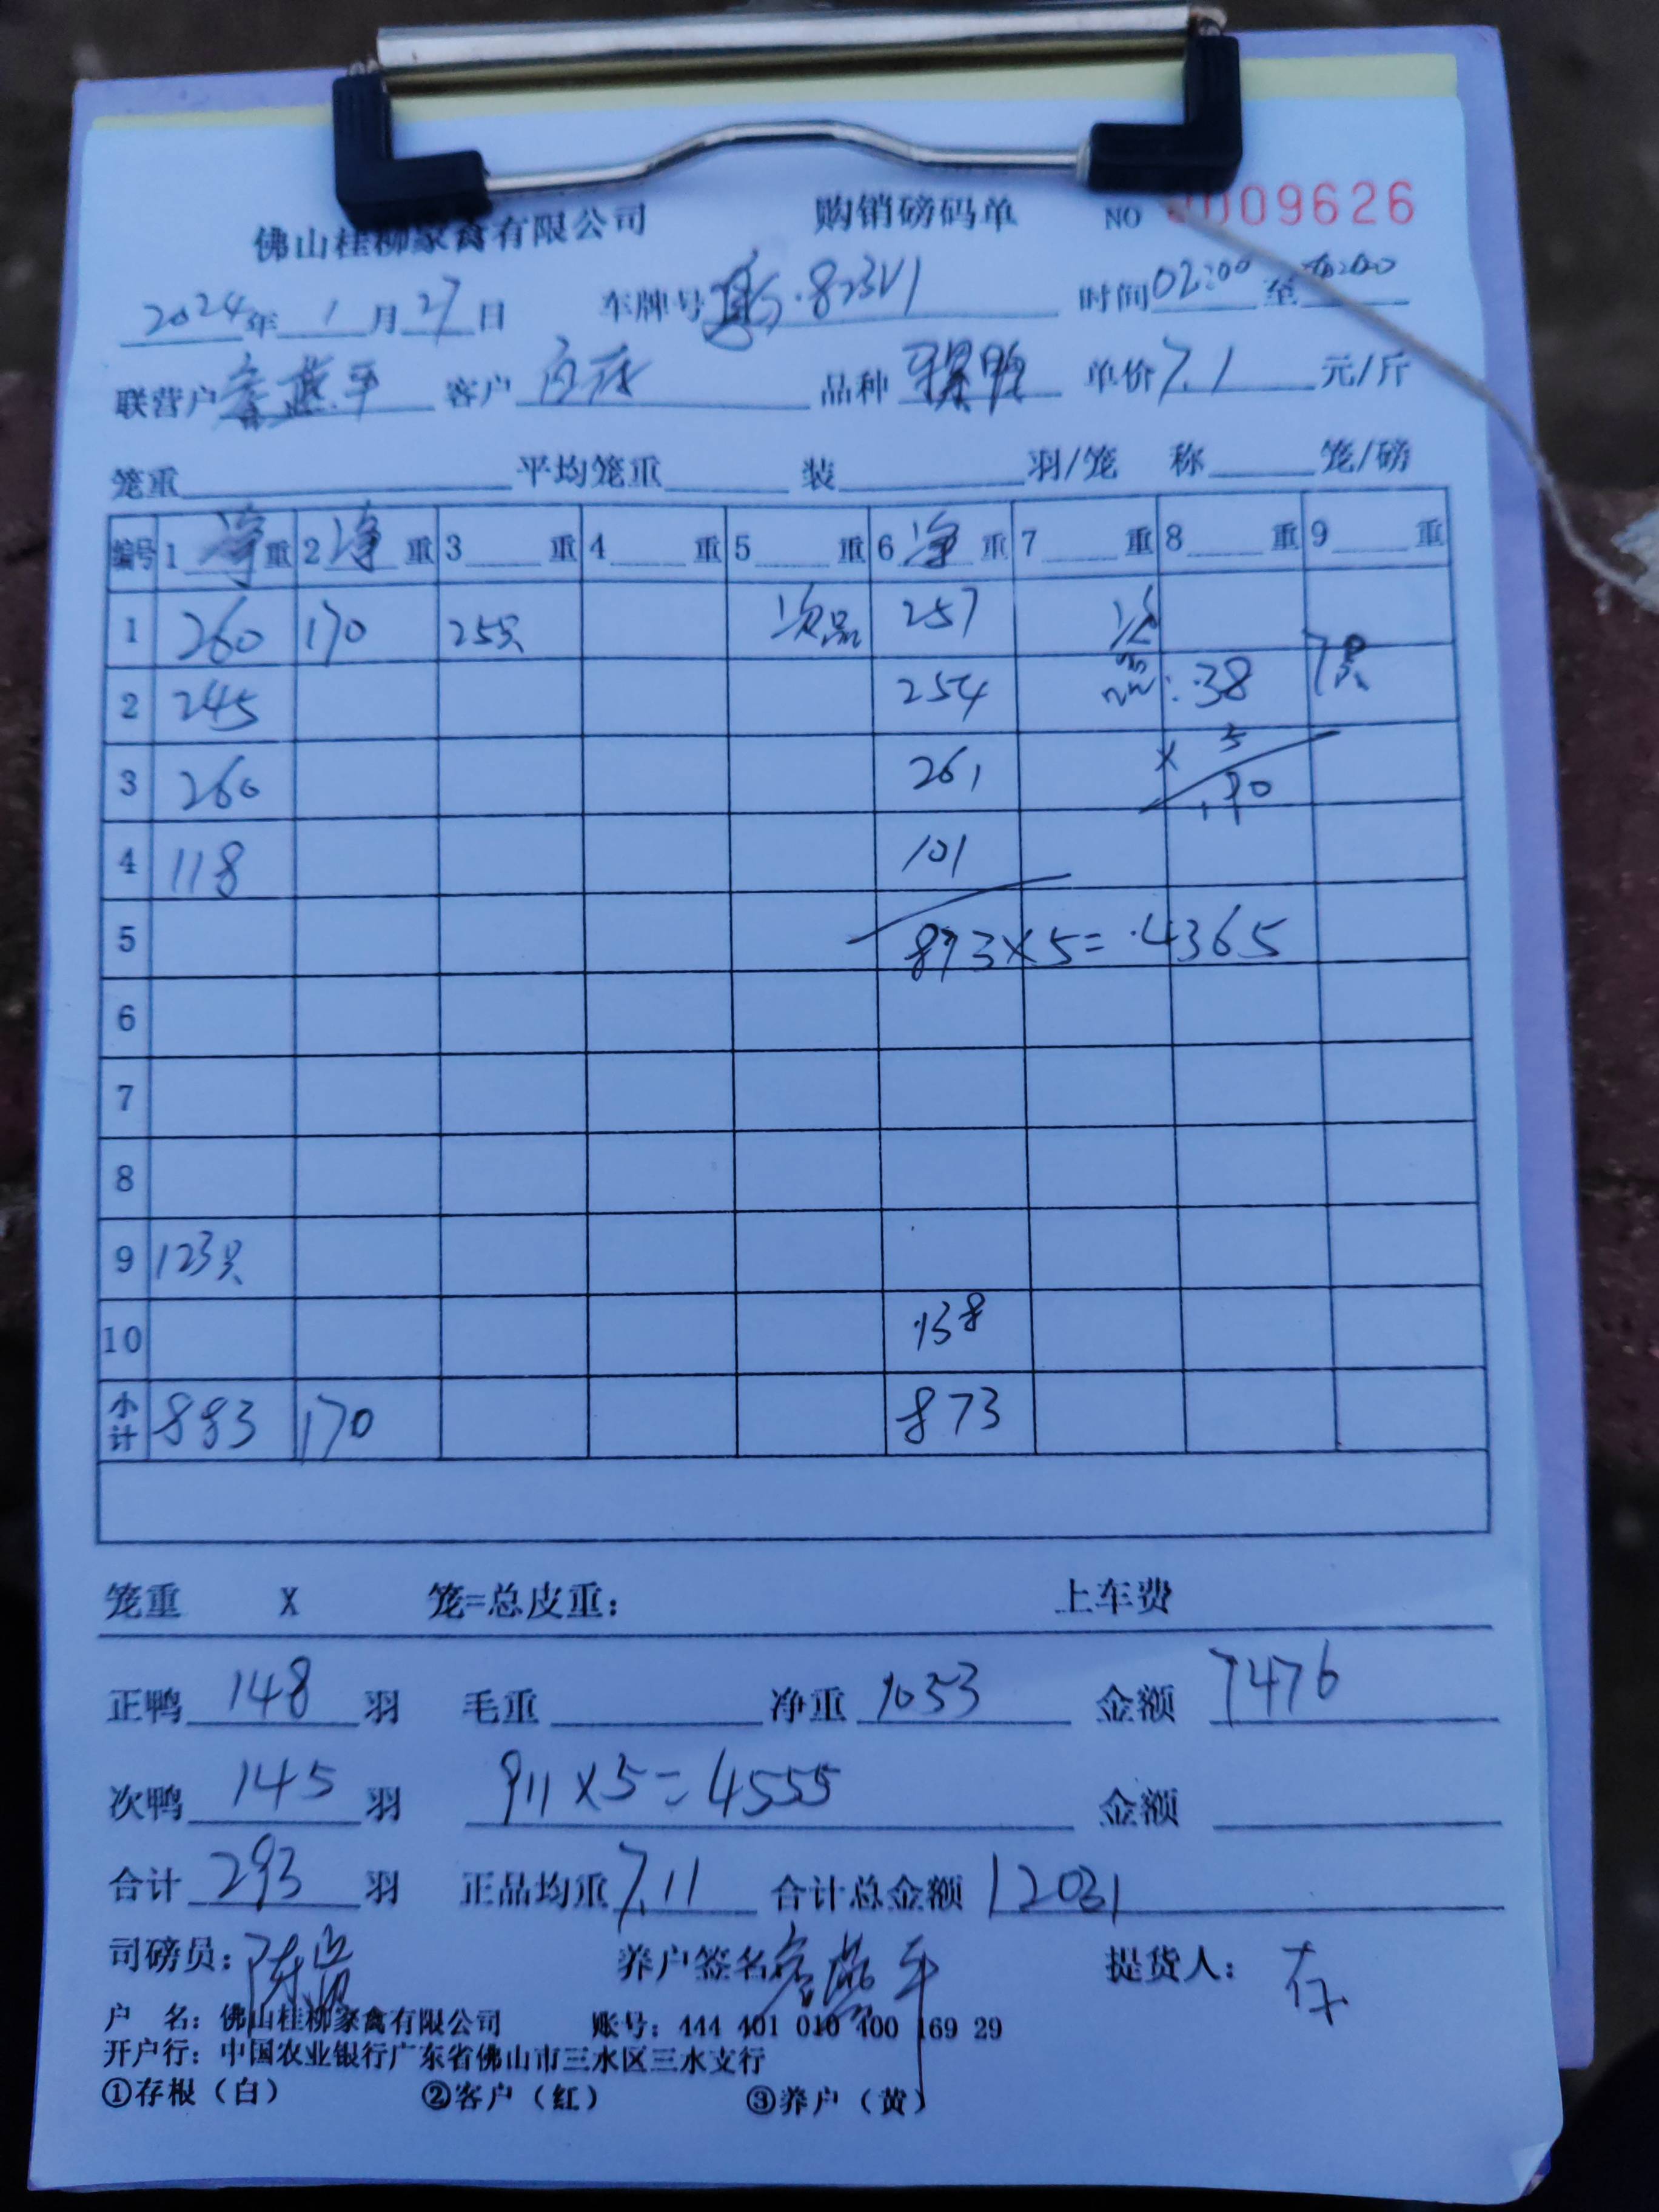 佛山桂柳家禽有限公司 购销磅码单 NO 0009626
2024年1月27日 车牌号 .823V1 时间02:00至
联营户 燕平 客户 品种 单价7.1元/斤
笼重 平均笼重 装 羽/笼 称 笼/磅
编号 1净重 2净重 3 重 4 重 5 重 6净重 7 重 8 重 9 重
1 260 170 25只 次品 257 次
2 245 254 品 :38 7只
3 260 261 x 5
190
4 118 101
5 873x5=4365
6
7
8
9 123只
10 138
小计 883 170 873
笼重 X 笼=总皮重: 上车费
正鸭148羽 毛重 净重1053 金额7476
次鸭145羽 911x5=4555 金额
合计293羽 正品均重7.11 合计总金额12031
司磅员:陈 养户签名 燕平 提货人:
户 名:佛山桂柳家禽有限公司 账号:444 401 010 400 169 29
开户行:中国农业银行广东省佛山市三水区三水支行
①存根(白) ②客户(红) ③养户(黄)